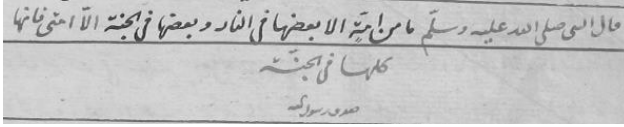 قال النبى صلى الله عليه وسلّم ما من امّة الا بعضها فى النار و بعضها فى الجنة الّا امتى فانها
كلها فى الجنّة
صدق رسول الله